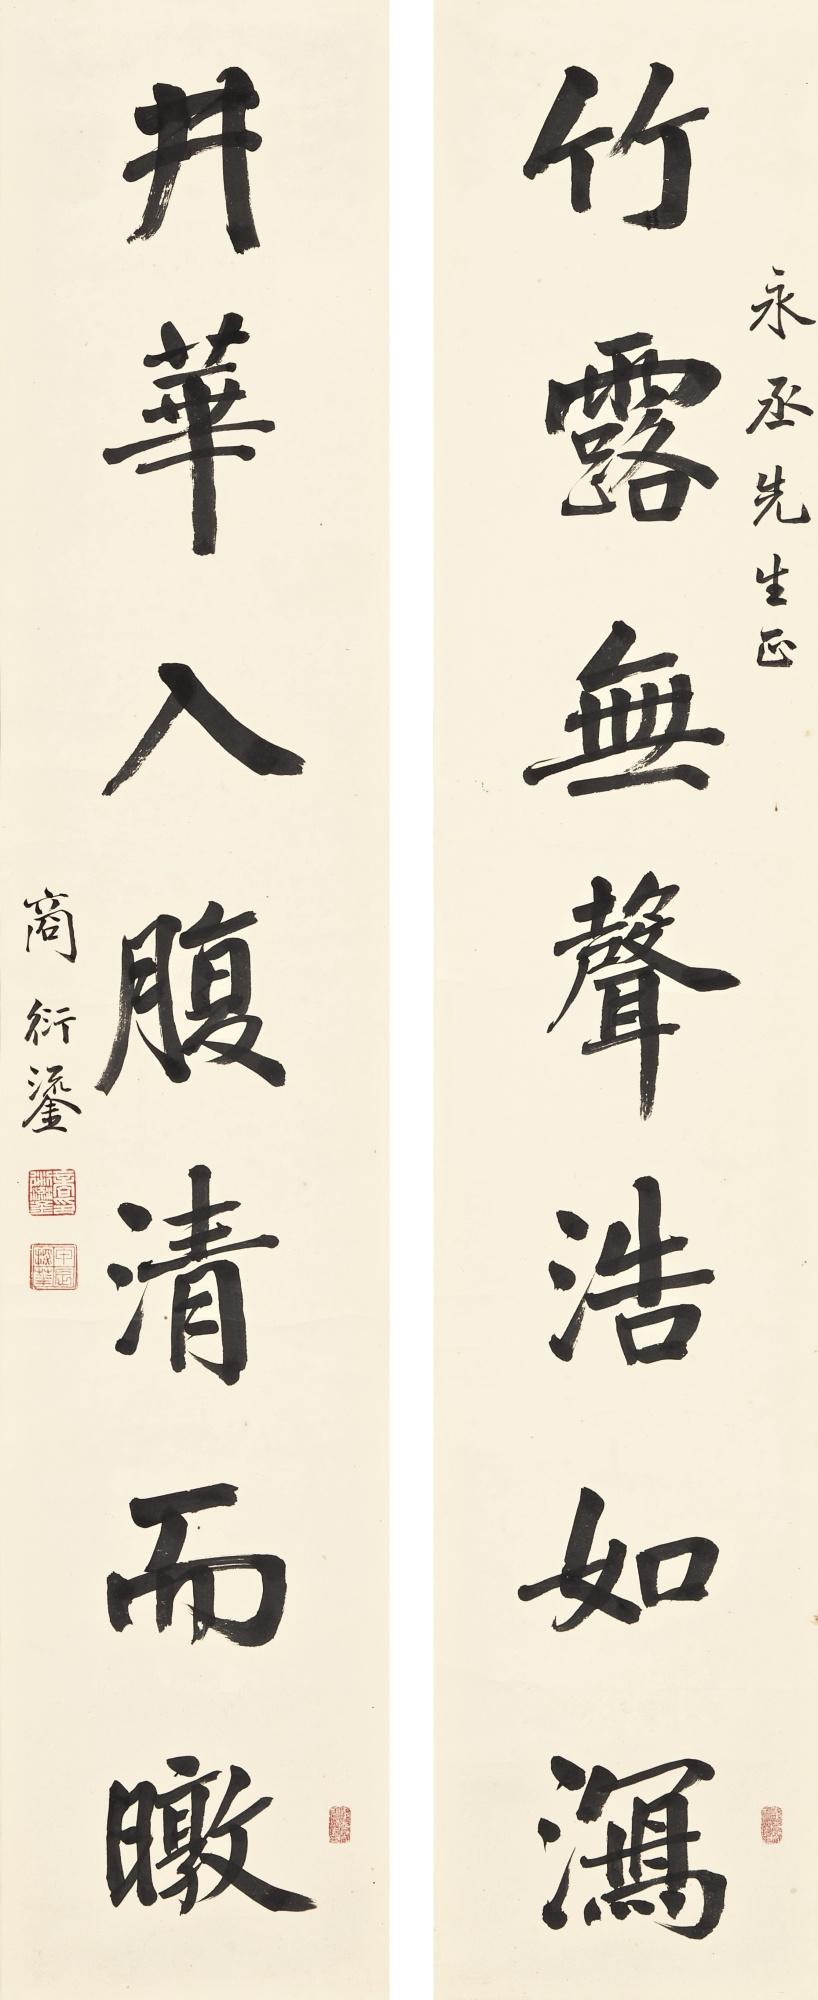 永丞先生正
竹露無聲浩如瀉
井華入腹清而暾
商衍鎏